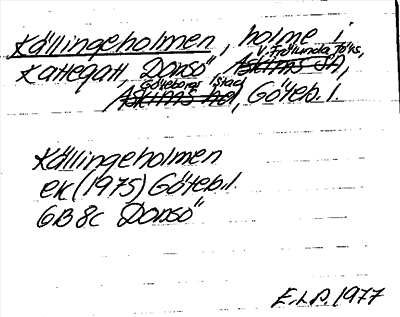 Källingeholmen, holme i
V. Frölunda föks,
Kattegatt, Donsö Askims sn,
Göteborgs stad
Askims hd, Göteb. l.
Källingeholmen
ek (1975) Göteb. l.
6B 8c Donsö
E.L.P. 1977